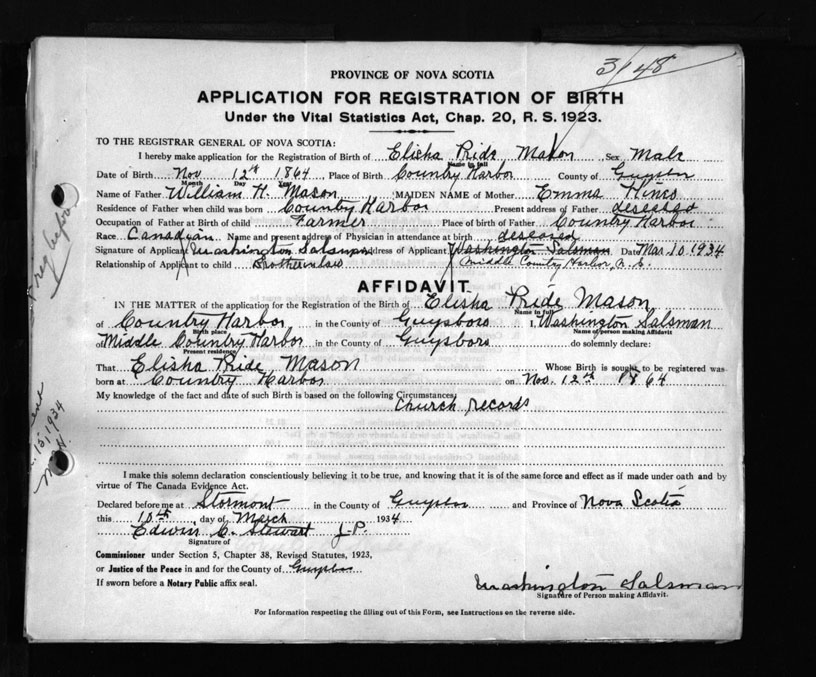 3148
PROVINCE OF NOVA SCOTIA
APPLICATION FOR REGISTRATION OF BIRTH
Under the Vital Statistics Act, Chap. 20, R. S. 1923.
TO THE REGISTRAR GENERAL OF NOVA SCOTIA:
I hereby make application for the Registration of Birth of Elisha Pride Mason Sex Male
Name in full
Date of Birth Nov 12th 1864 Place of Birth Country Harbor County of Guysboro
Month Day Year
Name of Father William H. Mason MAIDEN NAME of Mother Emma Hines
Residence of Father when child was born Country Harbor Present address of Father deseased
Occupation of Father at Birth of child Farmer Place of Birth of Father Country Harbor
Race Canadian Name and present address of Physician in attendance at birth deseased
Signature of Applicant Washington Salsman address of Applicant Washington Salsman Date Mar. 10 1934
Relationship of Applicant to child Brotherinlaw Middle Country Harbor, N. S.
AFFIDAVIT
IN THE MATTER of the application for the Registration of the Birth of Elisha Pride Mason
Name in full
of Country Harbor in the County of Guysboro I, Washington Salsman
Birth place Name of person making Affidavit
of Middle Country Harbor in the County of Guysboro do solemnly declare:
Present residence
That Elisha Pride Mason Whose Birth is sought to be registered was
born at Country Harbor on Nov. 12th 1864
My knowledge of the fact and date of such Birth is based on the following Circumstances:
Church records
I make this solemn declaration conscientiously believing it to be true, and knowing that it is of the same force and effect as if made under oath and by
virtue of The Canada Evidence Act.
Declared before me at Stormont in the County of Guysboro and Province of Nova Scotia
this 10th day of March 1934
Edwin C. Stewart J-P.
Signature of
Commissioner under Section 5, Chapter 38, Revised Statutes, 1923,
or Justice of the Peace in and for the County of Guysboro
If sworn before a Notary Public affix seal.
Washington Salsman
Signature of Person making Affidavit.
For Information respecting the filling out of this Form, see Instructions on the reverse side.
15, 1934